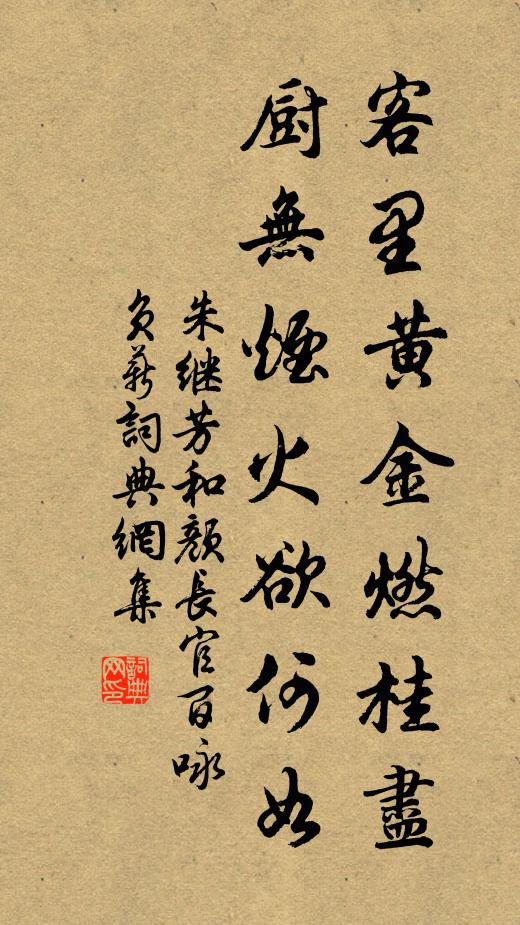 客里黄金燃桂盡
厨無煙火欲何如
朱继芳和顏長官百咏
負薪詞典網集
詞典网印